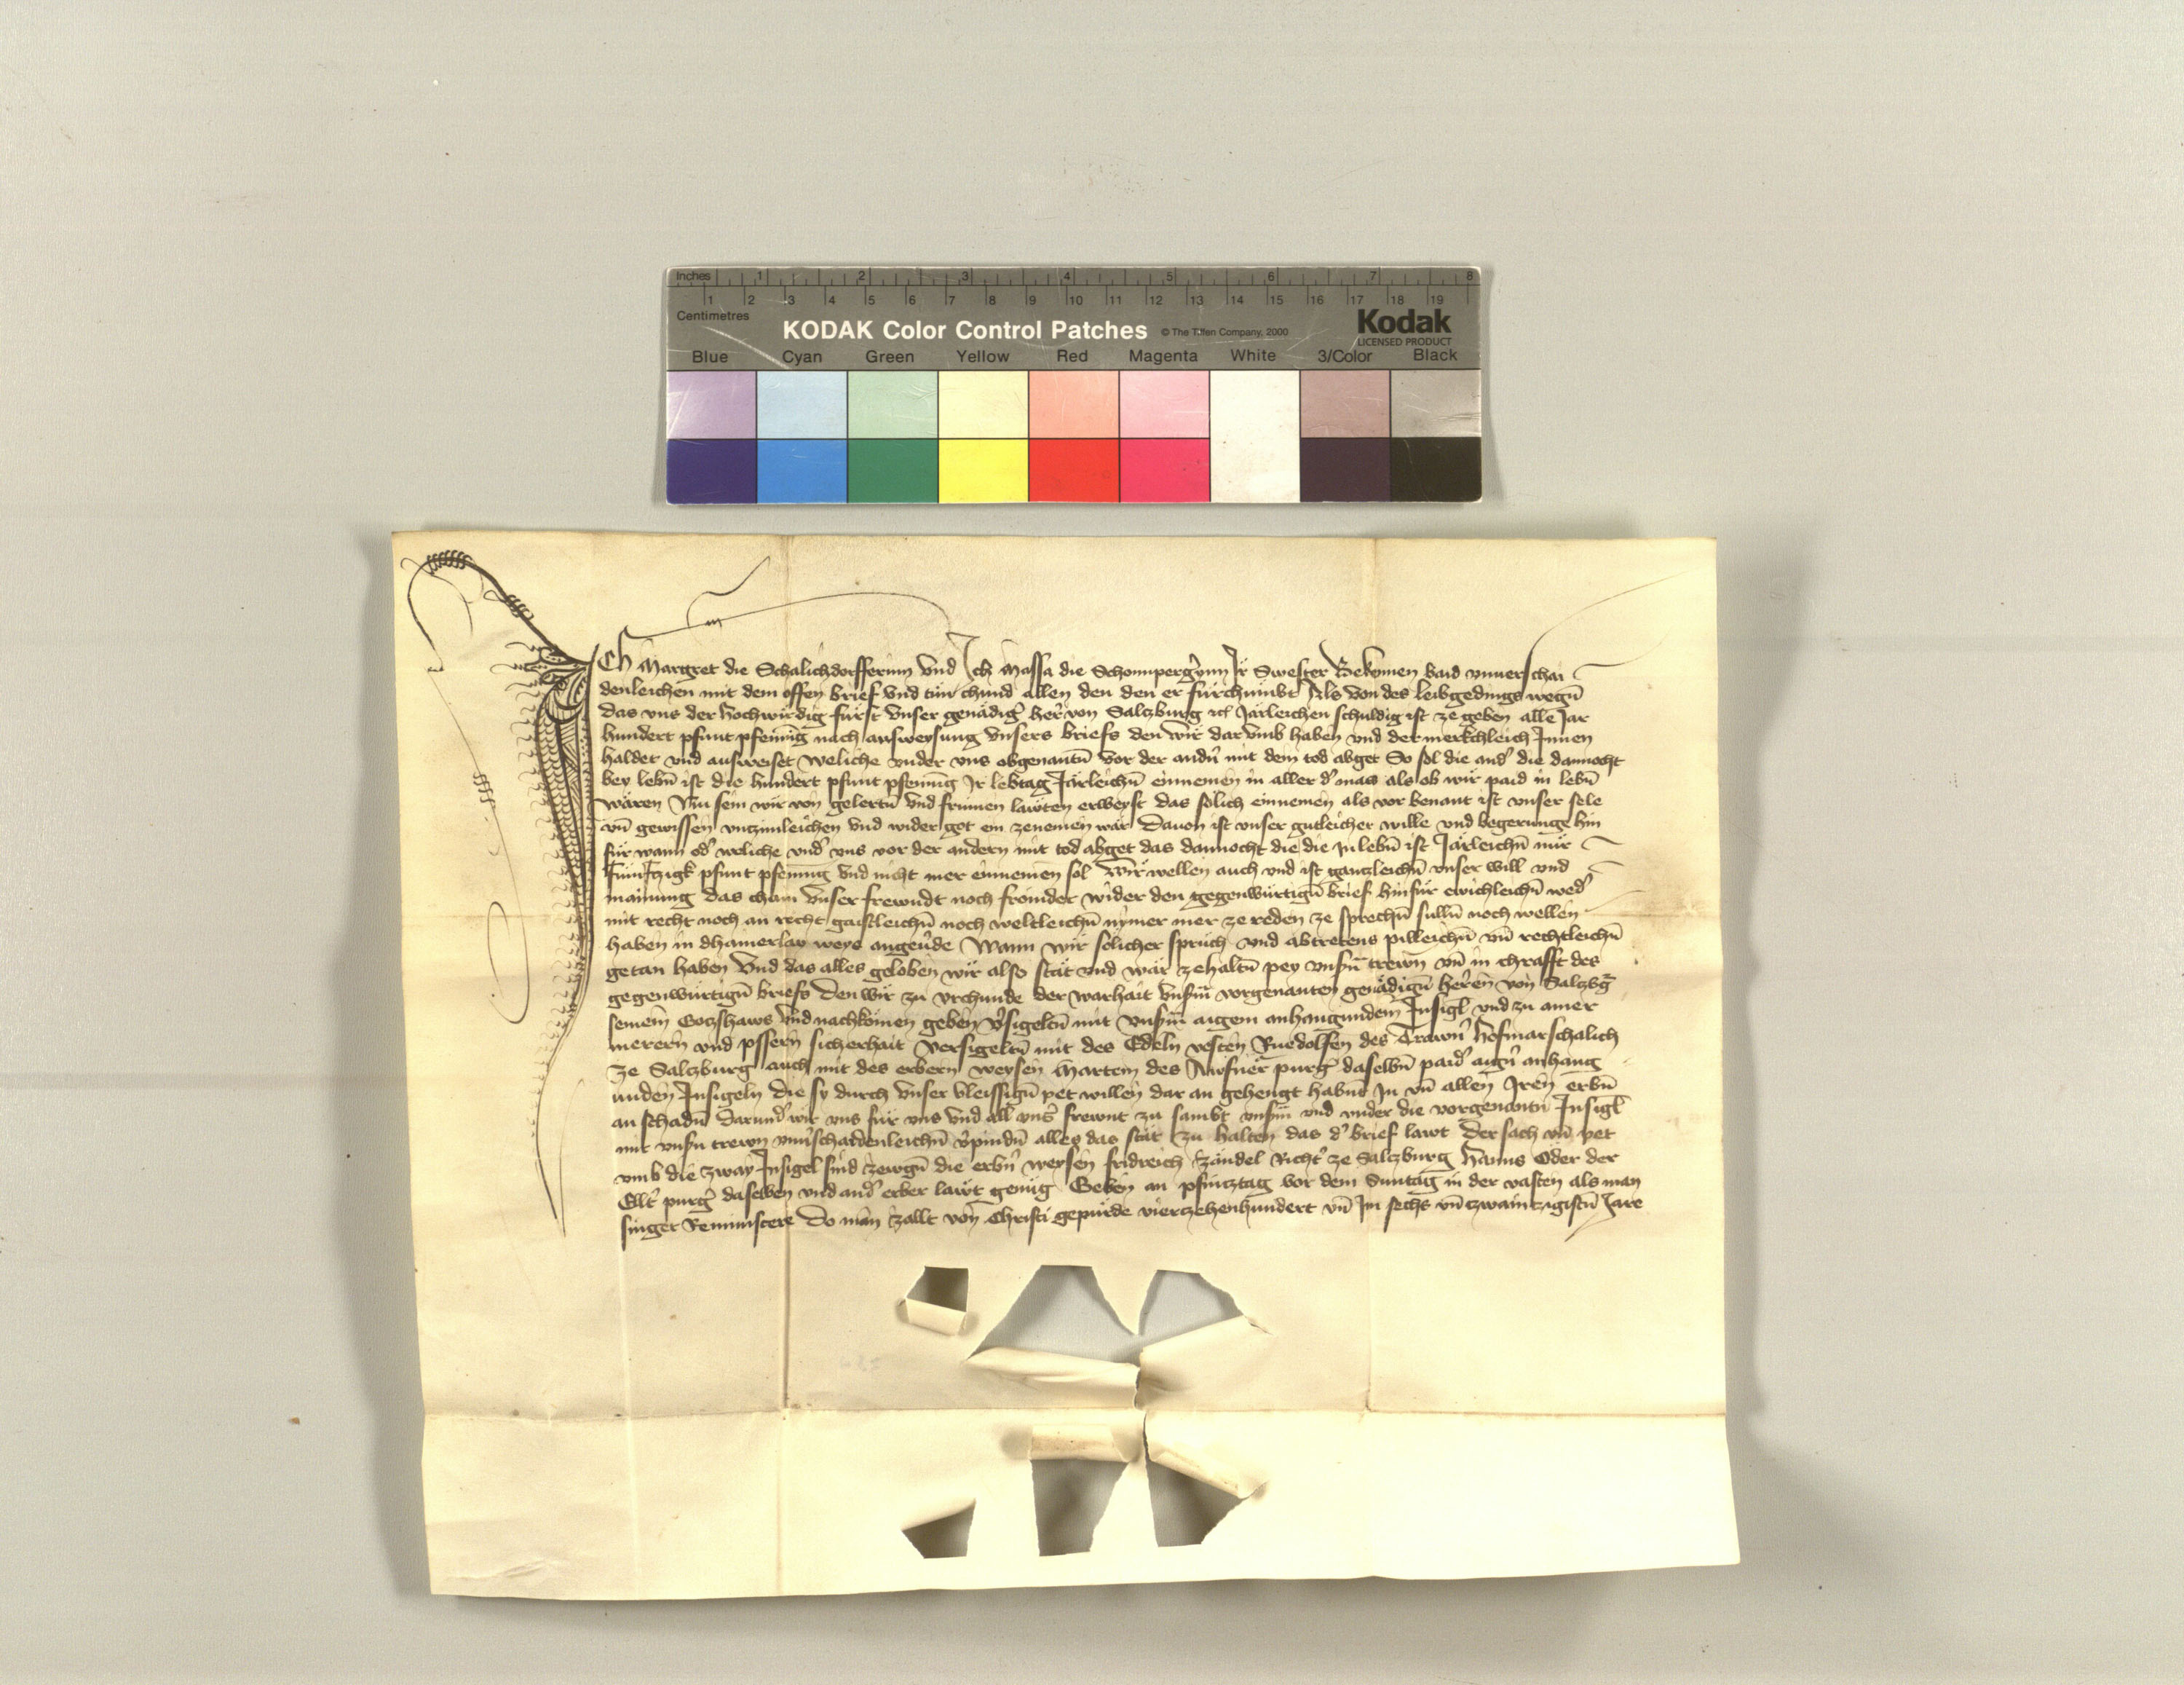 Inches 1 2 3 4 5 6 7 8
1 2 3 4 5 6 7 8 9 10 11 12 13 14 15 16 17 18 19
Centimetres
KODAK Color Control Patches © The Tiffen Company, 2000 Kodak
LICENSED PRODUCT
Blue Cyan Green Yellow Red Magenta White 3/Color Black
Ich Margret die Schalichdorfferinn Vnd Ich Massa die Schonnpergerinn Ir Swester Bekennen baid vnuerschai
denleichen mit dem offen brief Vnd tun chund allen den den er furchumbt Als von des leibgedings wegn̄
das vns der hochwirdig furst Vnser genädiger herr von Salzburg Järleichen schuldig ist ze geben alle Jar
hundert pfunt pfennig nach ausweysung Vnsers briefs den wir darvmb haben vnd der merkchleich Innen
haldet vnd ausweiset weliche vnder vns obgenantn̄ vor der andn̄ mit dem tod abget So sol die and' die dannocht
bey lebn̄ ist die hundert pfunt pfennig Ir lebtag Järleichn̄ einnemen in aller d' mas als ob wir paid in lebn̄
wären Nu sein wir von gelertn̄ Vnd frumen läwten erweyst das solich einnemen als vor benant ist vnser sele
vn̄ gewissen vnzimleichen Vnd wider got ein zenemen wär Dauon ist vnser gutleicher wille vnd begerunge hin
für wann od' weliche vnd' vns vor der andern mit tod abget das dannocht die die In lebn̄ ist Järleichn̄ nür
fünfzigk pfunt pfennig Vnd nicht mer einnemen sol Wir wellen auch vnd ist gantzleichn̄ vnser will vnd
mainung das chain Vnser frewndt noch fromder wider den gegenwürtign̄ brief hinfür ewichleichn̄ wed'
mit recht noch an recht gaistleichn̄ noch weltleichn̄ nymer mer ze reden ze sprechn̄ sulln̄ noch wellen
haben in dhainerlay weys angeuerde Wann wir solicher spruch vnd abtretens pilleichn̄ vn̄ rechtleichn̄
getan haben Vnd das alles geloben wir also stät vnd war zehaltn̄ pey vnsn̄ trewn vn̄ in chrafft des
gegenwürtign̄ briefs Den wir zu vrchunde der warhait Vnserm vorgenanten genädign̄ herren von Salzbg
seinem Gotzhaws Vnd nachkomen geben v'sigeltn̄ mit Vnserm aigem anhangundem Insigl vnd zu ainer
merern vnd pssern sicherhait Versigeltn̄ mit des Edeln vesten Ruedolfen des Trawn' hofmarschalich
ze Salzburg auch mit des erbern weysen Martein des Awfner purg' daselbn̄ paid' aign̄ anhang
unden Insigeln Die sy durch Vnser vleissign̄ pet willen dar an gehengt habnt In vn̄ allen Iren erbn̄
an schadn̄ Darund' wir vns für vns Vnd all vns' frewnt zu sambt vnserm vnd vnder die vorgenantn̄ Insigl
mit vnsn̄ trewn vnu'schaidenleichn̄ v'pindn̄ alles das stät zu halten das d' brief lawt Der sach vn̄ pet
vmb die zway Insigel sind zewgn̄ die erbn̄ weysen fridreich Zändel Richt' ze Salzburg Hanns Oder der
Ellt' purg' daselben vnd and' erber läwt genug Geben an pfintztag vor dem Suntag in der vasten als man
singet Reminiscere Do man zallt von Christi gepürde vierzehenhundert vn̄ Im sechs vn̄ zwaintzigistn̄ Jare